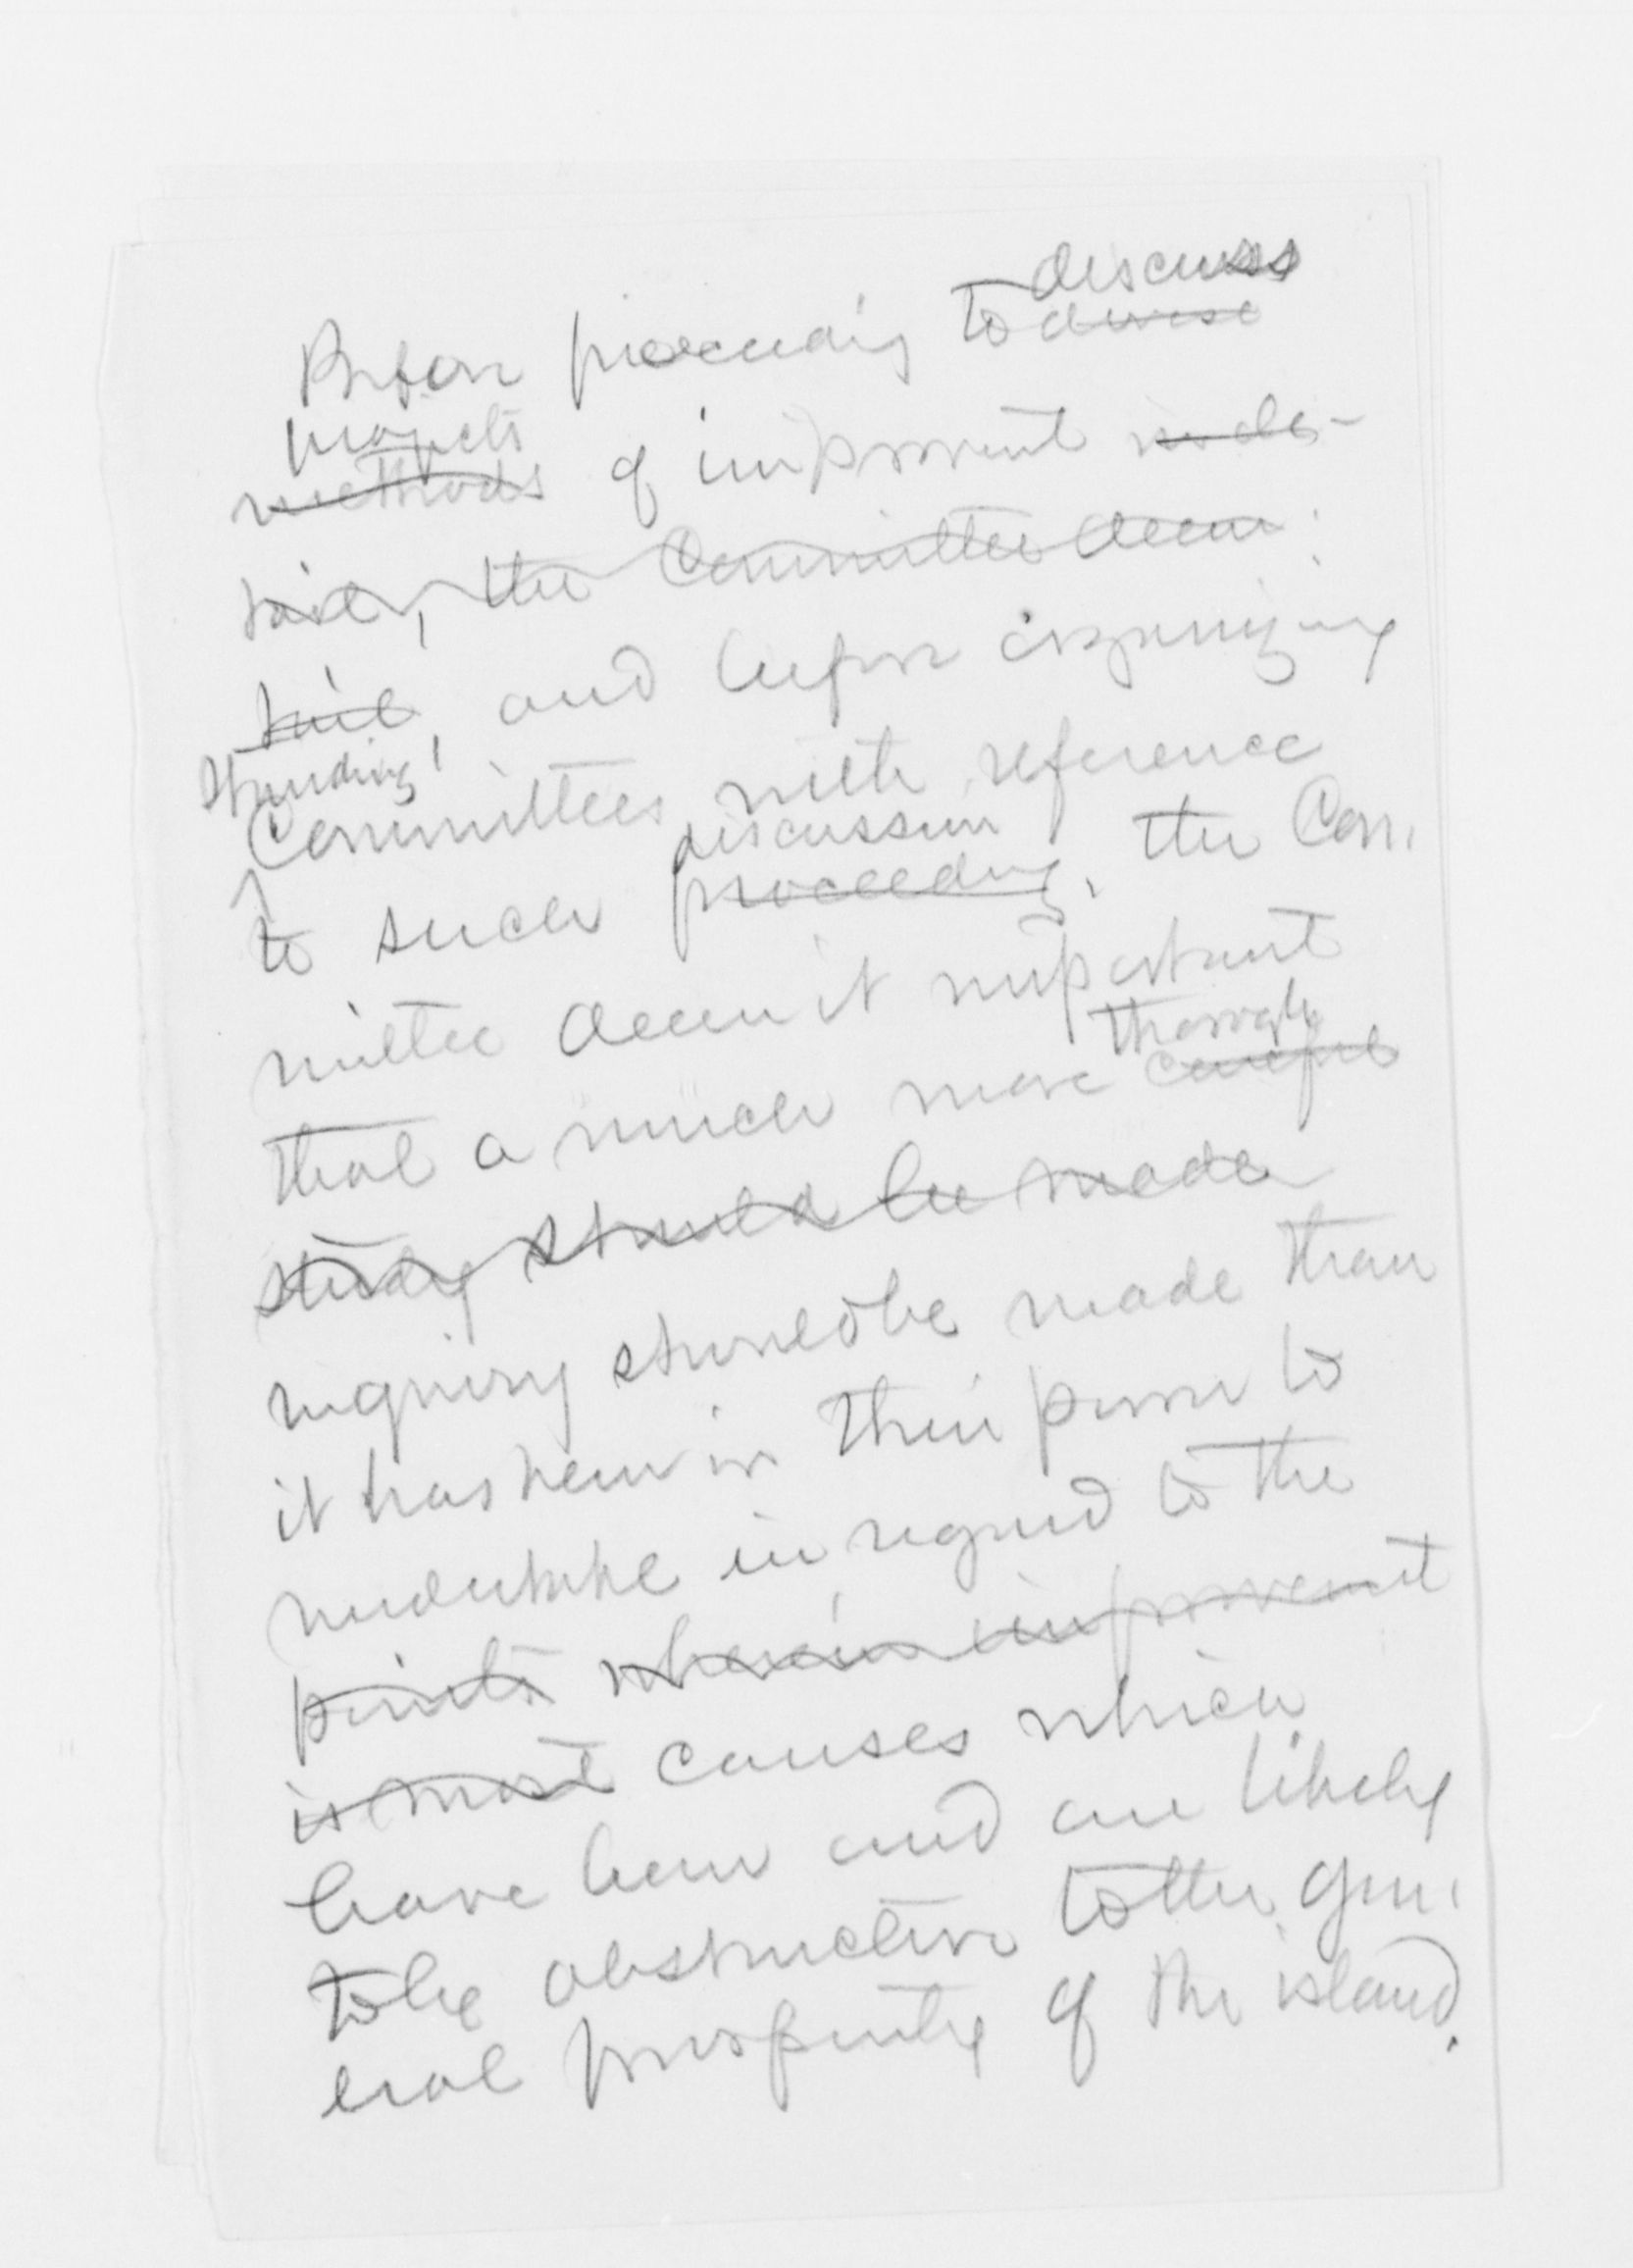 discuss
Before proceeding to devise
projects
methods of improvement in de-
tail, the Committee deem
tail, and before organizing
Standing
Committees with reference
discussion
to such proceeding, the Com.
mittee deem it important
thorough
that a much more careful
study should be made
inquiry should be made than
it has been in their power to
undertake in regard to the
points wherein improvement
is most causes which
have been and are likely
to be obstructive to the gen.
eral prosperity of the island.